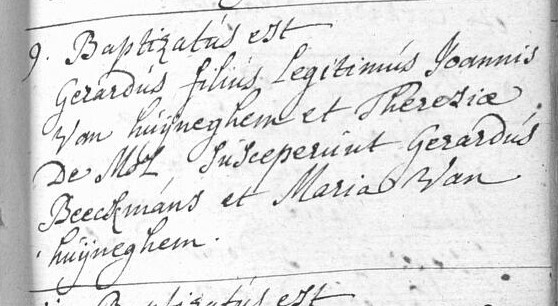 9. Baptizatús est
Gerardús filiús Legitimús Joannis
Van húÿneghem et Theresiæ
De Mol Susceperúnt Gerardús
Beeckmáns et Maria Van
húÿneghem.
Baptizatús est